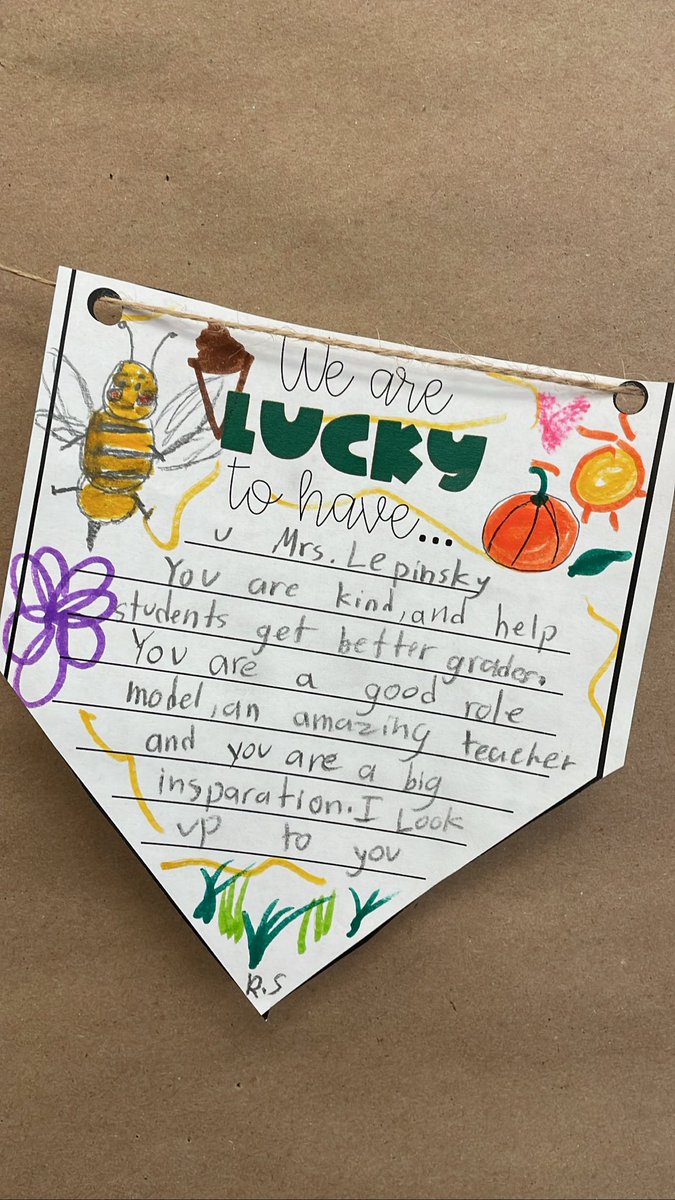 We are
LUCKY
to have...
u Mrs. Lepinsky
You are kind, and help
students get better grades.
You are a good role
model, an amazing teacher
and you are a big
insparation. I Look
up to you
R.S